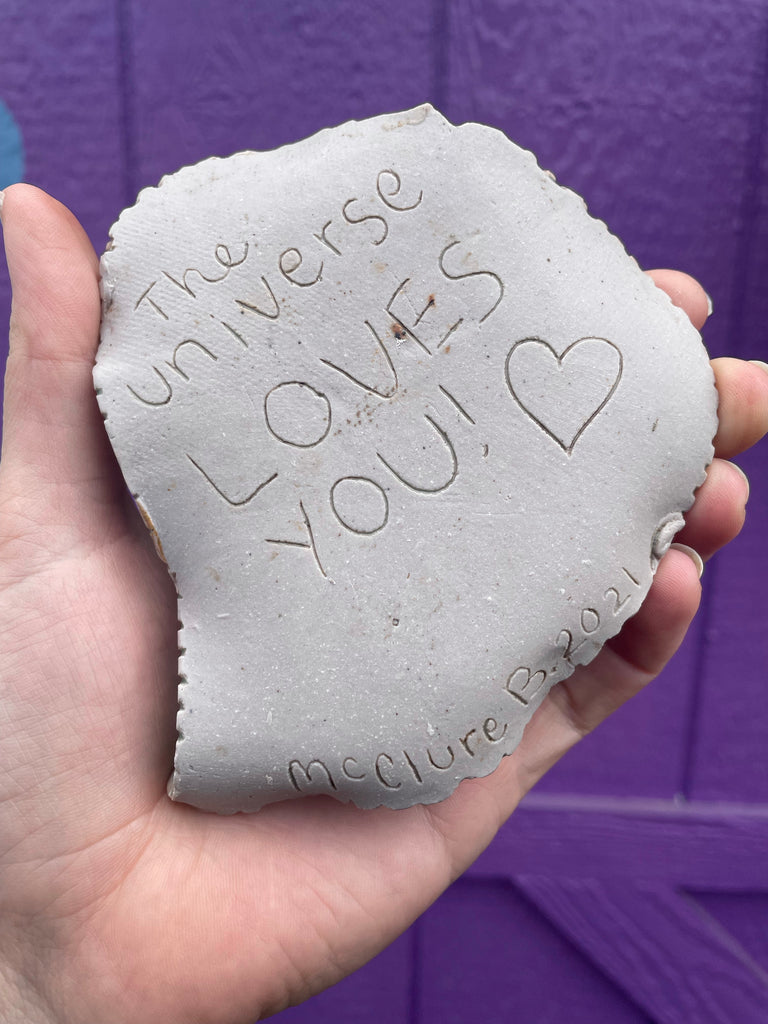 The
universe
LOVES
YOU!
McClure B. 2021